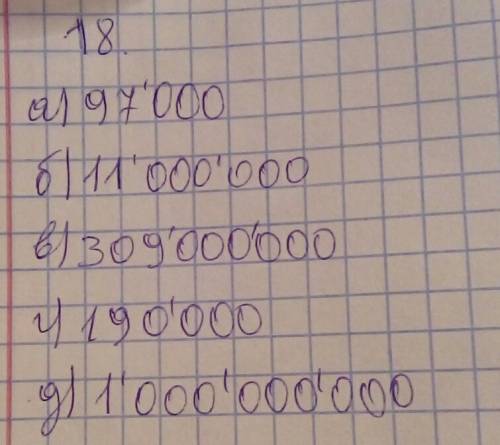 18.
а) 97'000
б) 11'000'000
в) 309'000'000
г) 190'000
д) 1'000'000'000